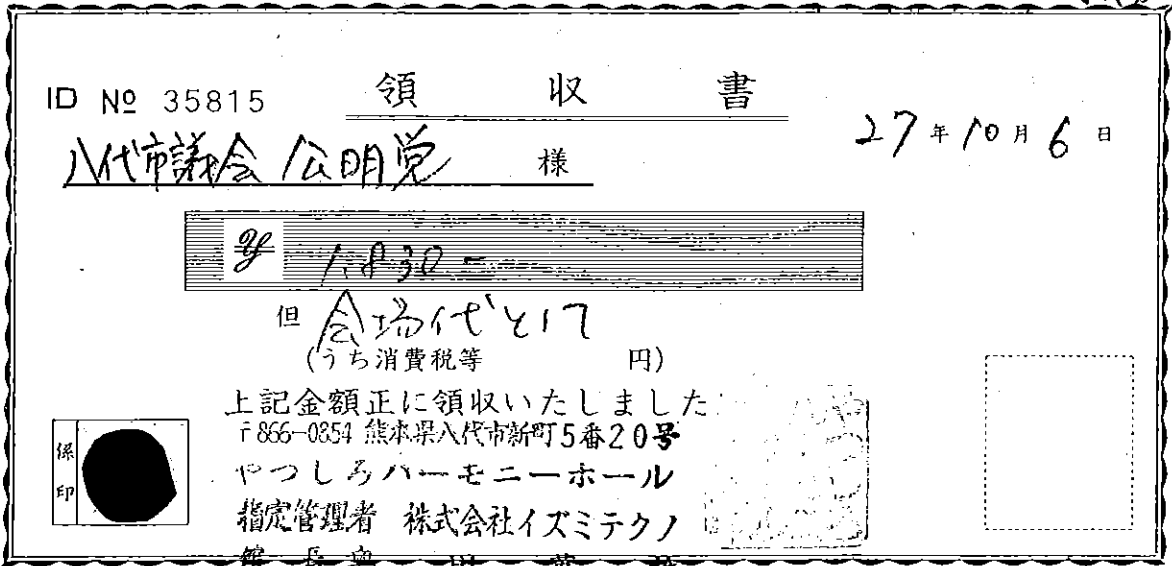 領収書
ID № 35815
27年10月6日
八代市議会 公明党 様
¥ 1,830-
但 会場代として
(うち消費税等 円)
上記金額正に領収いたしました
〒866-0854 熊本県八代市新町5番20号
やつしろハーモニーホール
指定管理者 株式会社イズミテクノ
館長
係印